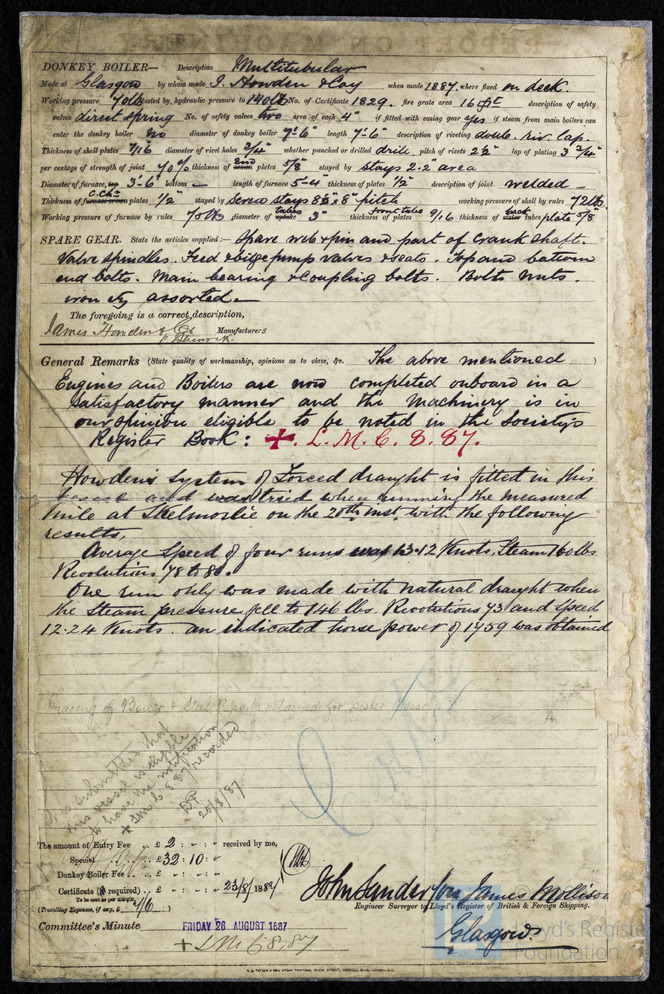 DONKEY BOILER— Description Multitubular
Made at Glasgow by whom made J. Howden & Coy when made 1887. where fixed on deck.
Working pressure 70lbs tested by hydraulic pressure to 140lbs No. of Certificate 1829. fire grate area 16 ft description of safety
valves direct spring No. of safety valves two area of each 4" if fitted with easing gear yes if steam from main boilers can
enter the donkey boiler no diameter of donkey boiler 7'-6" length 7'-6" description of riveting doub. riv. lap.
Thickness of shell plates 7/16 diameter of rivet holes 3/4" whether punched or drilled drill. pitch of rivets 2 1/2" lap of plating 3 3/4"
per centage of strength of joint 70% thickness of end plates 5/8 stayed by stays 2.2" area
Diameter of furnace, 3'-6" bottom — length of furnace 5-4 thickness of plates 1/2" description of joint welded —
Thickness of furnace crown plates C.Chr 1/2" stayed by Screw stays 8 1/2 x 8" pitch working pressure of shell by rules 72lbs.
Working pressure of furnace by rules 70lbs diameter of tubes 3" thickness of front tube plates 9/16 thickness of back tubes plate 5/8
SPARE GEAR. State the articles supplied:— Spare web & pin and part of crank shaft.
Valve spindles. Feed & bilge pump valves & seats. Top and bottom
end bolts. Main bearing & coupling bolts. Bolts nuts.
iron &c assorted —
The foregoing is a correct description,
James Howden & Co Manufacturers
General Remarks (State quality of workmanship, opinions as to class, &c. The above mentioned )
Engines and Boilers are now completed onboard in a
satisfactory manner and the Machinery is in
our opinion eligible to be noted in the Society's
Register Book: ✠. L. M. C. 8. 87.
Howden's system of Forced draught is fitted in this
vessel and was tried when running the measured
mile at Skelmorlie on the 20th inst. with the following
results.
Average Speed of four runs was 13.12 Knots, Steam 160 lbs
Revolutions 78 to 80.
One run only was made with natural draught when
the Steam pressure fell to 146 lbs. Revolutions 73 and Speed
12.24 Knots. an indicated horse power of 1759 was obtained
Tracing of Boiler & Steel Reports obtained for Sister Vessel
It is submitted that
this vessel is eligible
to have the notification
+ LMC 8 87 recorded
25/8/87
The amount of Entry Fee .. £ 2 : - : - received by me,
Special .. £ 32 : 10 : -
Donkey Boiler Fee .. £ - : - : -
Certificate (if required) .. £ - : - : - 23/8/1887
To be sent as per margin.
(Travelling Expenses, if any, £ 7/6 )
John Sanderson James Mollison
Engineer Surveyor to Lloyd's Register of British & Foreign Shipping.
Glasgow
Committee's Minute FRIDAY 26 AUGUST 1887
+ LMC 8,87
Lloyd's Register
Foundation